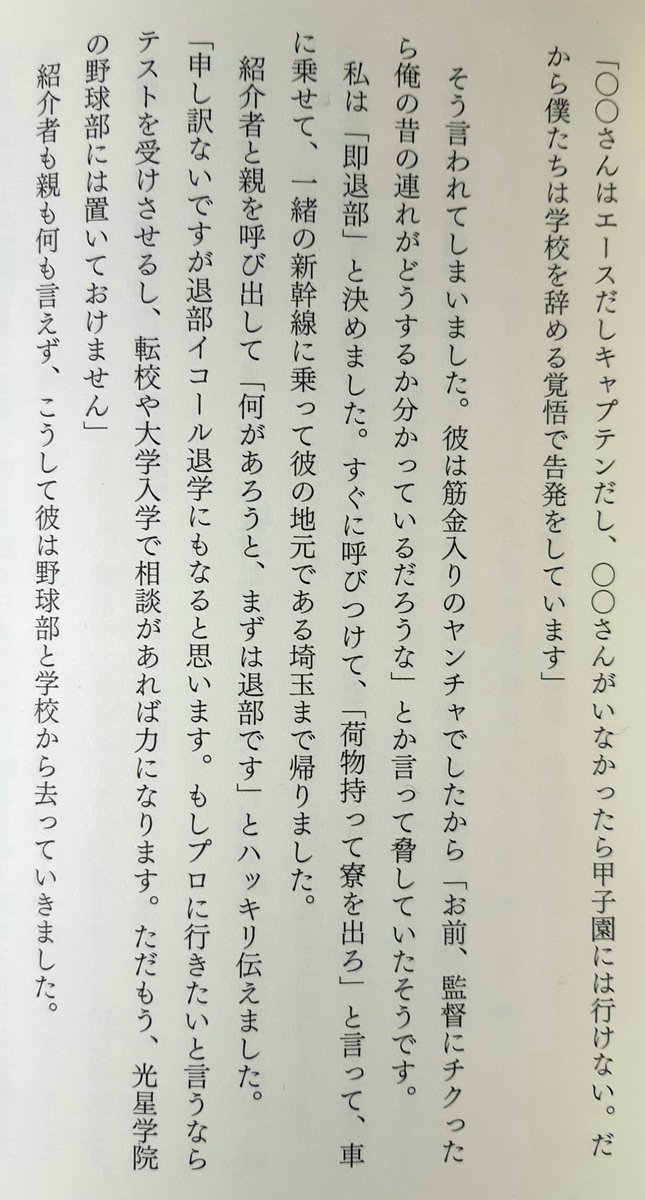 「〇〇さんはエースだしキャプテンだし、〇〇さんがいなかったら甲子園には行けない。だ
から僕たちは学校を辞める覚悟で告発をしています」
そう言われてしまいました。彼は筋金入りのヤンチャでしたから「お前、監督にチクった
ら俺の昔の連れがどうするか分かっているだろうな」とか言って脅していたそうです。
私は「即退部」と決めました。すぐに呼びつけて、「荷物持って寮を出ろ」と言って、車
に乗せて、一緒の新幹線に乗って彼の地元である埼玉まで帰りました。
紹介者と親を呼び出して「何があろうと、まずは退部です」とハッキリ伝えました。
「申し訳ないですが退部イコール退学にもなると思います。もしプロに行きたいと言うなら
テストを受けさせるし、転校や大学入学で相談があれば力になります。ただもう、光星学院
の野球部には置いておけません」
紹介者も親も何も言えず、こうして彼は野球部と学校から去っていきました。